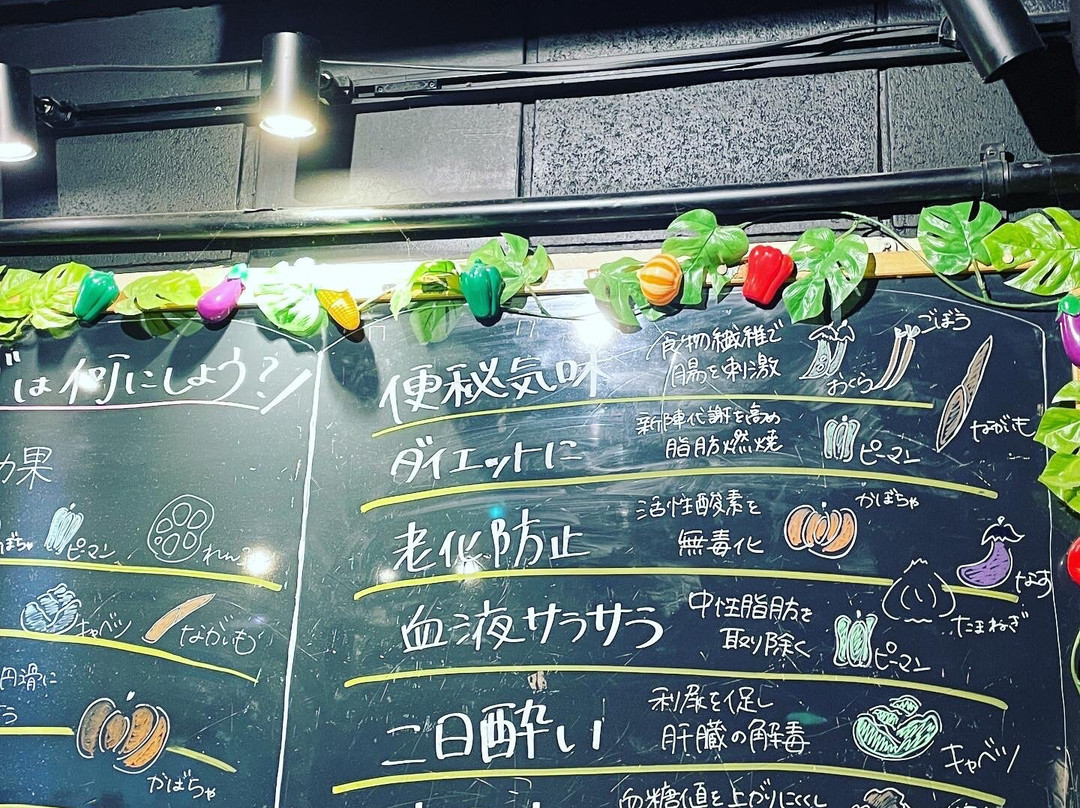 は何にしよう？
効果
ピーマン
キャベツ
ながいも
円滑に
かぼちゃ
便秘気味
食物繊維で
腸を刺激
おくら
ごぼう
ながいも
ダイエットに
新陳代謝を高め
脂肪燃焼
ピーマン
老化防止
活性酸素を
無毒化
かぼちゃ
なす
血液サラサラ
中性脂肪を
取り除く
ピーマン
たまねぎ
二日酔い
利尿を促し
肝臓の解毒
キャベツ
血糖値を上がりにくくし